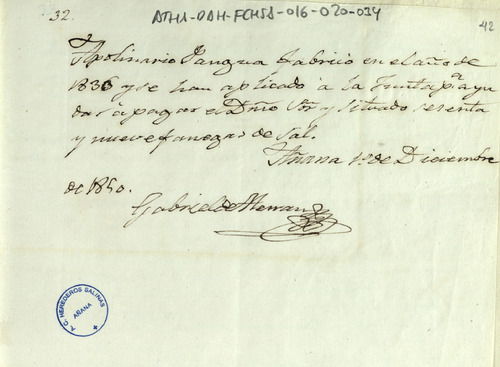 32.
ATHA-DAH-FCHSA-016-020-034
42
Apolinario Pangua fabricó en el año de
1836 y se han aplicado a la Junta pª ayu
dar á pagar el Dmo Stor y Situado sesenta
y nueve fanegas de Sal.
Añana 1º de Diciembre
de 1850.
Gabriel de Herran
T. C. HEREDEROS SALINAS
AÑANA